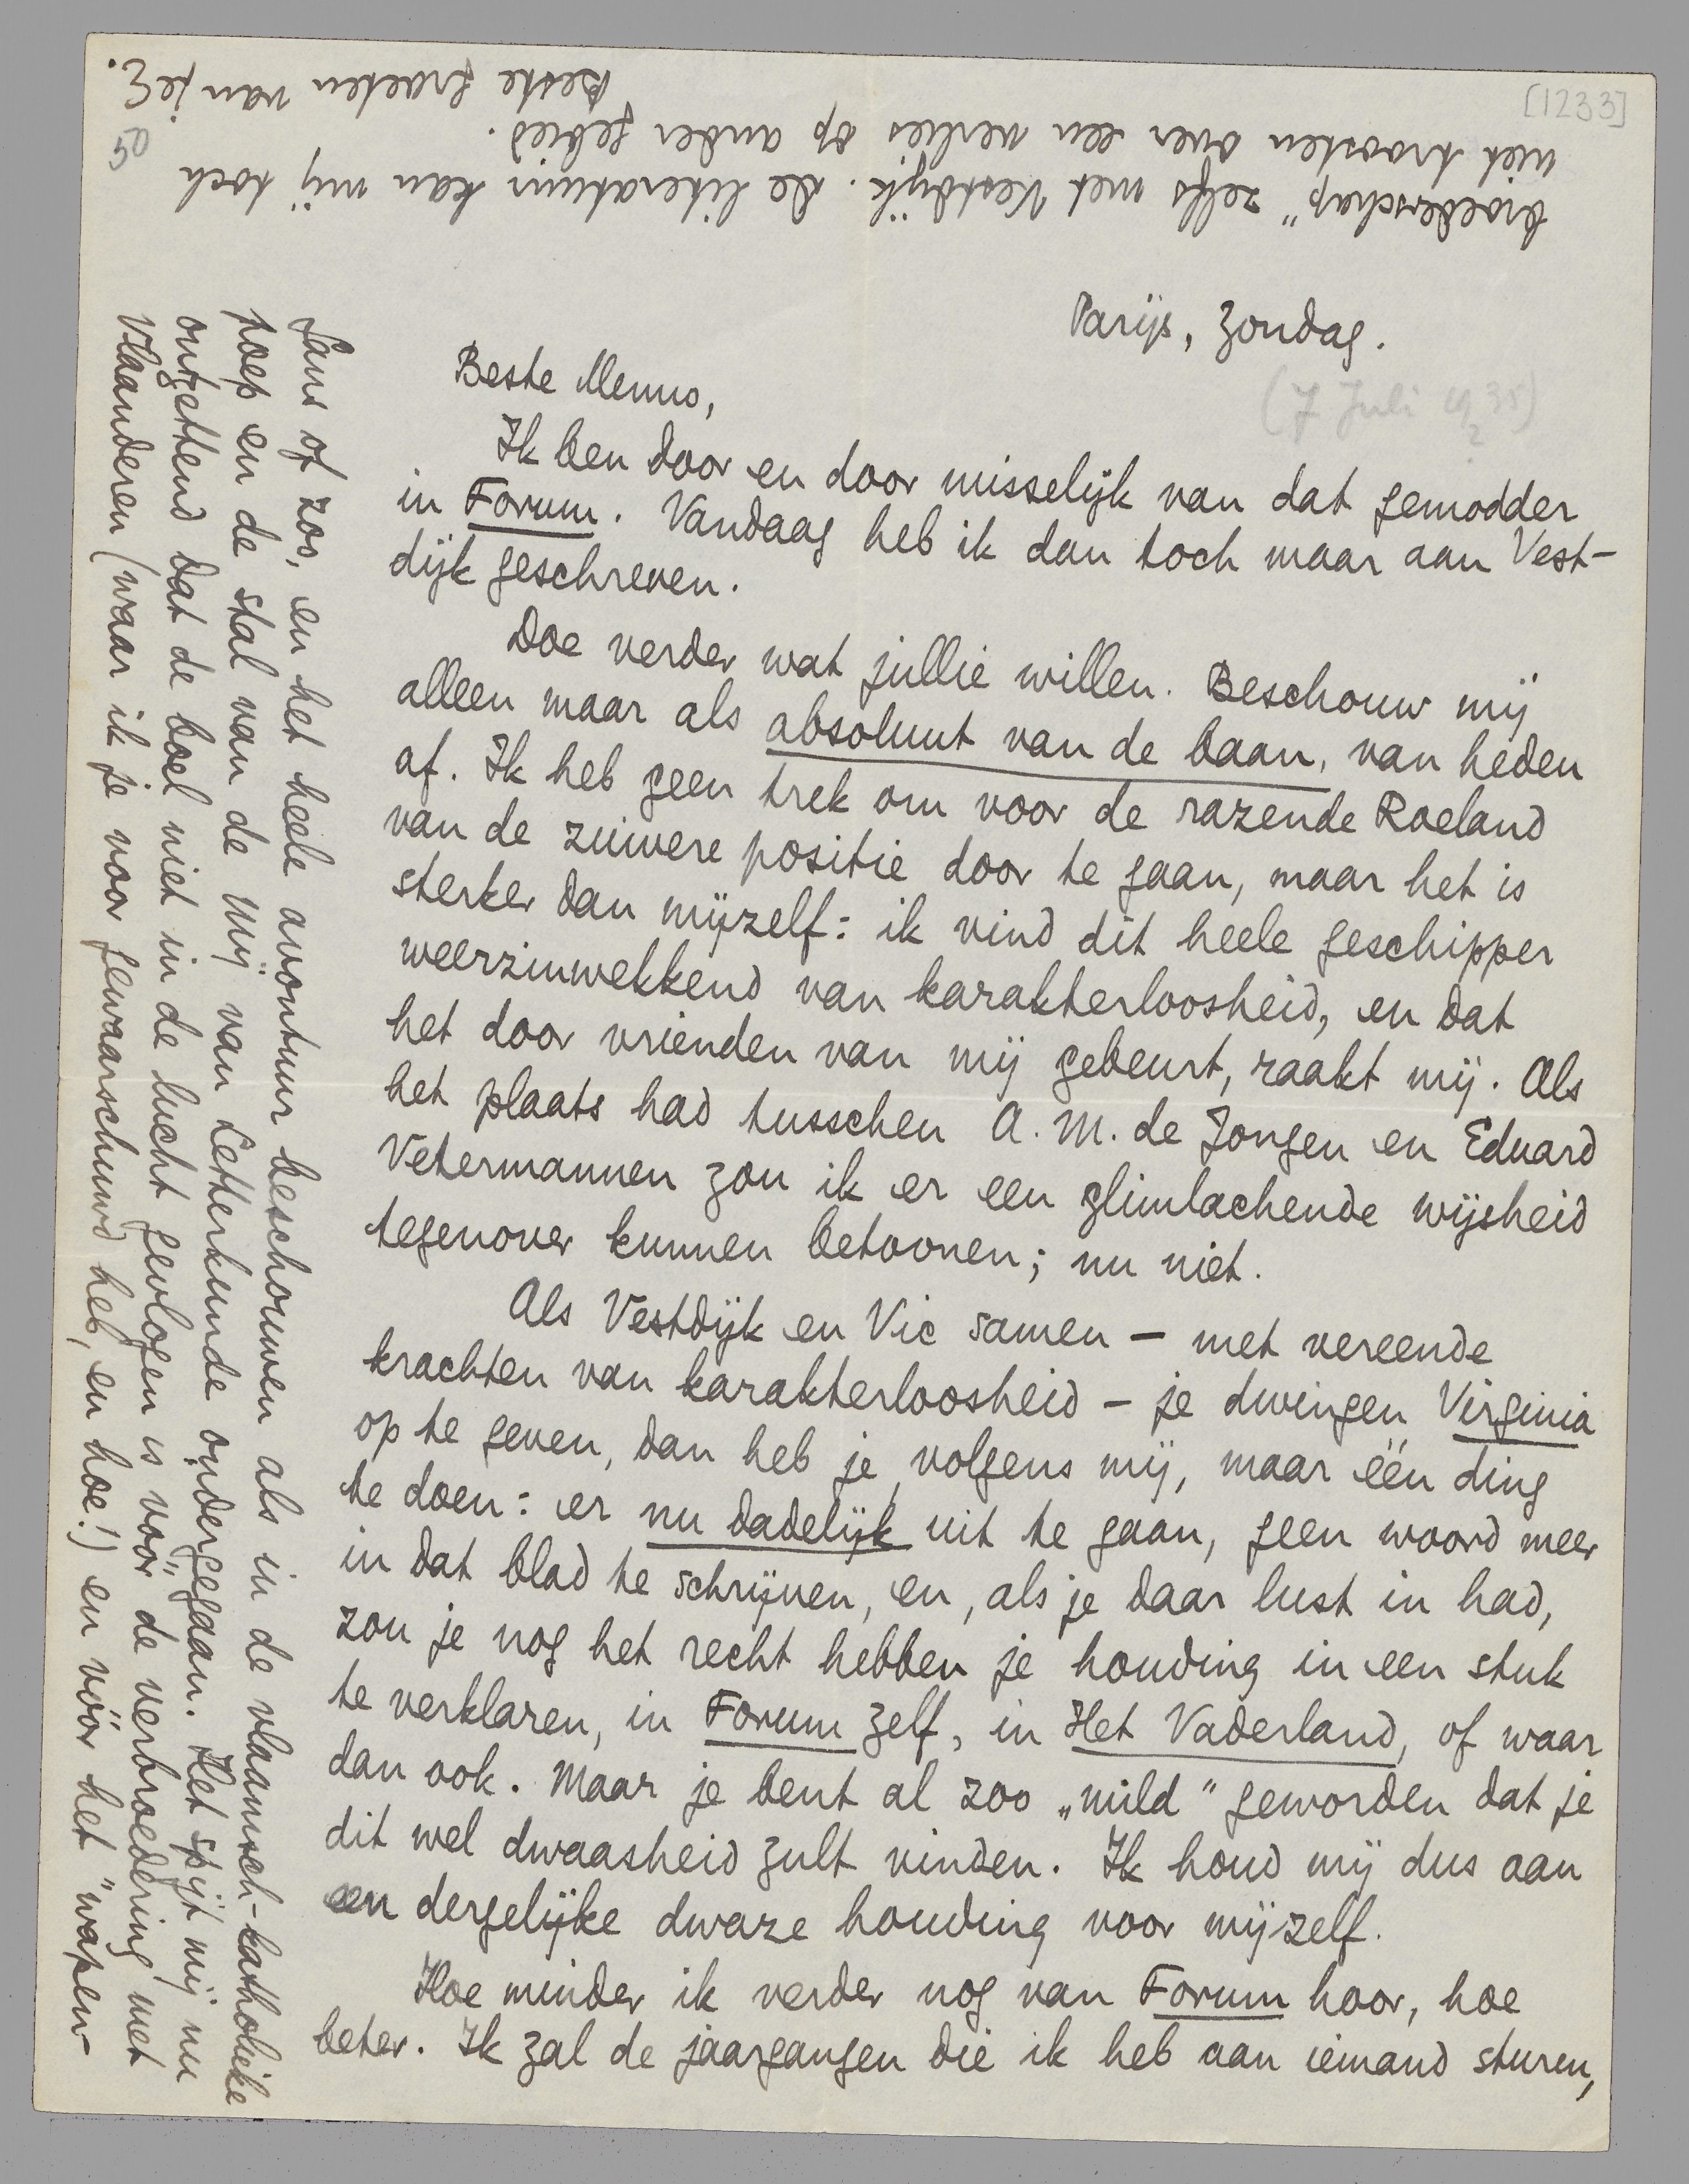 [1233]
50
Parijs, Zondag.
(7 Juli 1935)
2
Beste Menno,
Ik ben door en door misselijk van dat gemodder
in Forum. Vandaag heb ik dan toch maar aan Vest-
dijk geschreven.
Doe verder wat jullie willen. Beschouw mij
alleen maar als absoluut van de baan, van heden
af. Ik heb geen trek om voor de razende Roeland
van de zuivere positie door te gaan, maar het is
sterker dan mijzelf: ik vind dit heele geschipper
weerzinwekkend van karakterloosheid, en dat
het door vrienden van mij gebeurt, raakt mij. Als
het plaats had tusschen A. M. de Jongen en Eduard
Vetermannen zou ik er een glimlachende wijsheid
tegenover kunnen betoonen; nu niet.
Als Vestdijk en Vic samen – met vereende
krachten van karakterloosheid – je dwingen Virginia
op te geven, dan heb je, volgens mij, maar één ding
te doen: er nu dadelijk uit te gaan, geen woord meer
in dat blad te schrijven, en, als je daar lust in had,
zou je nog het recht hebben je houding in een stuk
te verklaren, in Forum zelf, in Het Vaderland, of waar
dan ook. Maar je bent al zoo „mild” geworden dat je
dit wel dwaasheid zult vinden. Ik houd mij dus aan
een dergelijke dwaze houding voor mijzelf.
Hoe minder ik verder nog van Forum hoor, hoe
beter. Ik zal de jaargangen die ik heb aan iemand sturen,
Sans of zoo, en het heele avontuur beschouwen als in de vlaamsch-katholieke
poep en de stal van de Mij van Letterkunde ondergegaan. Het spijt mij nu
ontzettend dat de boel niet in de lucht gevlogen is vóór de verbroedering met
Vlaanderen (waar ik je voor gewaarschuwd heb, en hoe!) en vóór het „wapen-
broederschap” zelfs met Vestdijk. De literatuur kan mij toch
niet troosten over een verlies op ander gebied.
Beste groeten van je E.